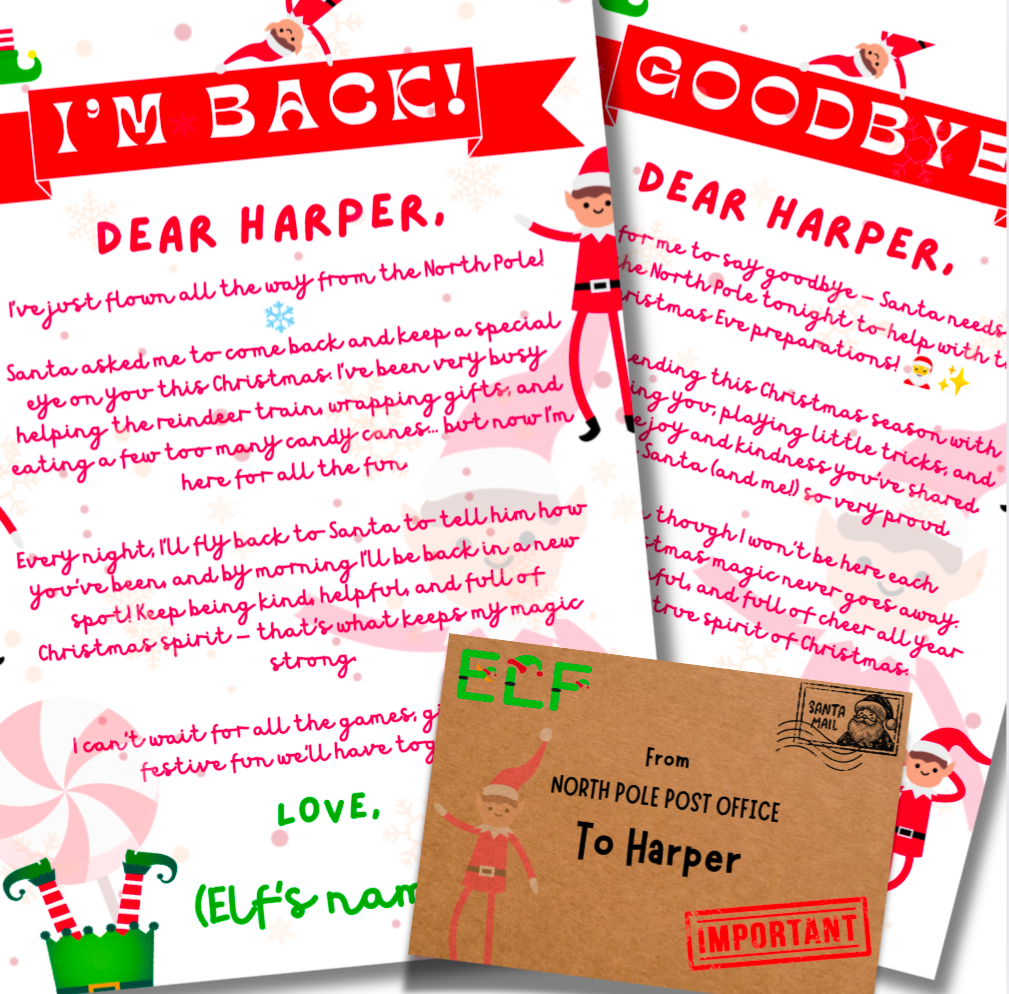 I'M BACK!
DEAR HARPER,
I've just flown all the way from the North Pole!
Santa asked me to come back and keep a special
eye on you this Christmas. I've been very busy
helping the reindeer train, wrapping gifts, and
eating a few too many candy canes... but now I'm
here for all the fun.
Every night, I'll fly back to Santa to tell him how
you've been, and by morning I'll be back in a new
spot! Keep being kind, helpful, and full of
Christmas spirit – that's what keeps my magic
strong.
I can't wait for all the games, gi
festive fun we'll have tog
LOVE,
(Elf's nam
GOODBYE
DEAR HARPER,
for me to say goodbye – Santa needs
the North Pole tonight to help with t
ristmas Eve preparations!
ending this Christmas season with
ing you, playing little tricks, and
joy and kindness you've shared.
Santa (and me!) so very proud.
though I won't be here each
stmas magic never goes away.
ful, and full of cheer all year
true spirit of Christmas.
ELF
SANTA
MAIL
From
NORTH POLE POST OFFICE
To Harper
IMPORTANT